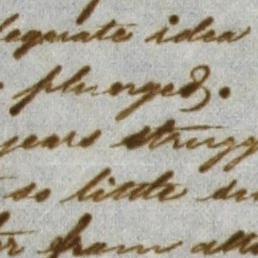 dequate idea
plunged.
years strugg
so little su
from alto